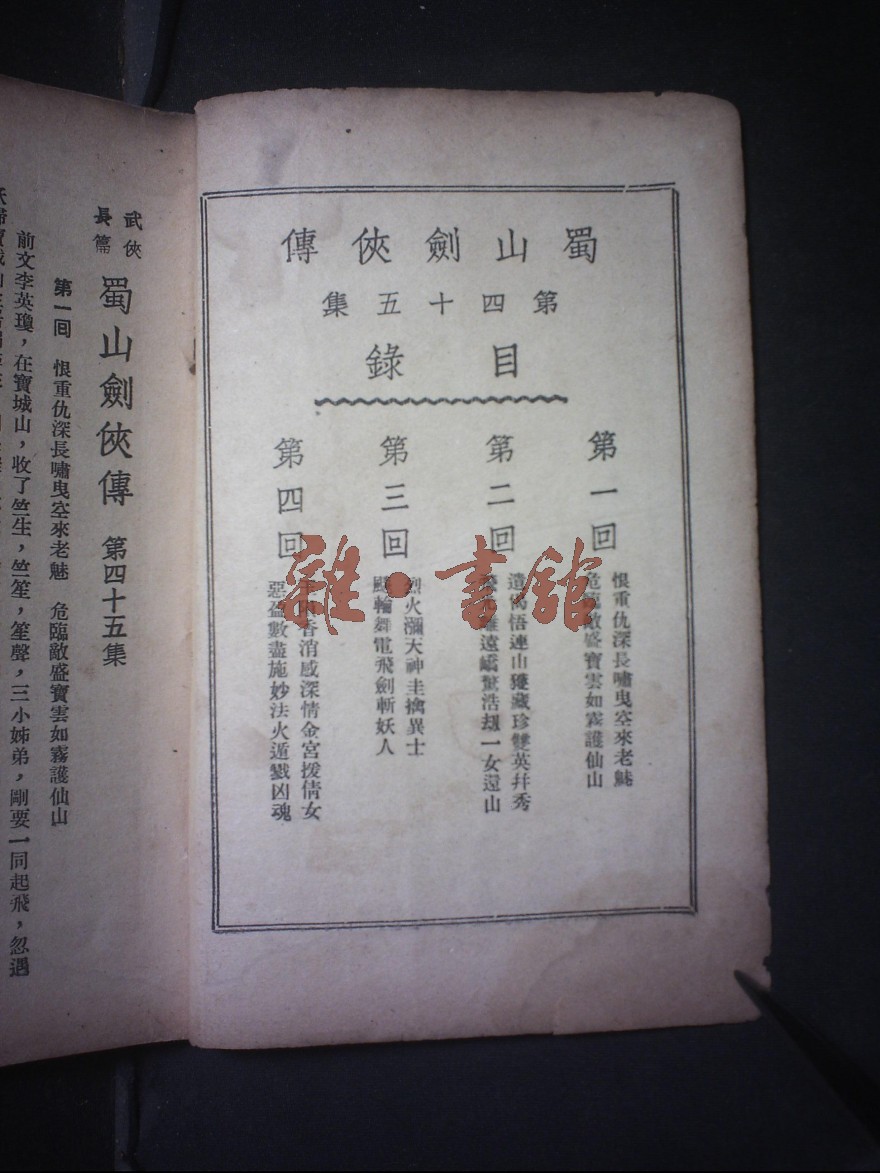 蜀山劍俠傳
第四十五集
目錄
第一回
恨重仇深長嘯曳空來老魅
危臨敵盛寶雲如霧護仙山
第二回
連山獲藏珍雙英幷秀
遠嶠驚浩劫一女還山
第三回
烈火瀰大神圭擒異士
颶輪舞電飛劍斬妖人
第四回
香消感深情金宮援倩女
惡盈數盡施妙法火遁戮凶魂
雜·書館
武俠
長篇
蜀山劍俠傳 第四十五集
第一回 恨重仇深長嘯曳空來老魅 危臨敵盛寶雲如霧護仙山
前文李英瓊,在寶城山,收了竺生,竺笙,笙聲,三小姊弟,剛要一同起飛,忽遇